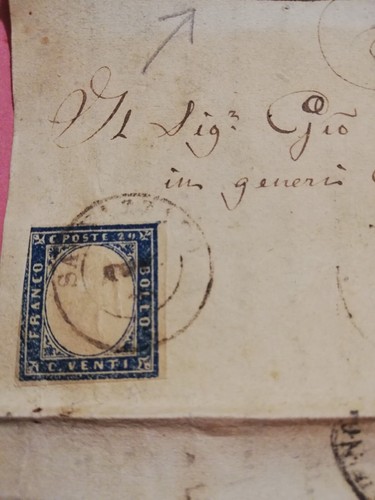 Il Sig.r Gio
in generi
C. POSTE 20
FRANCO
BOLLO
C. VENTI